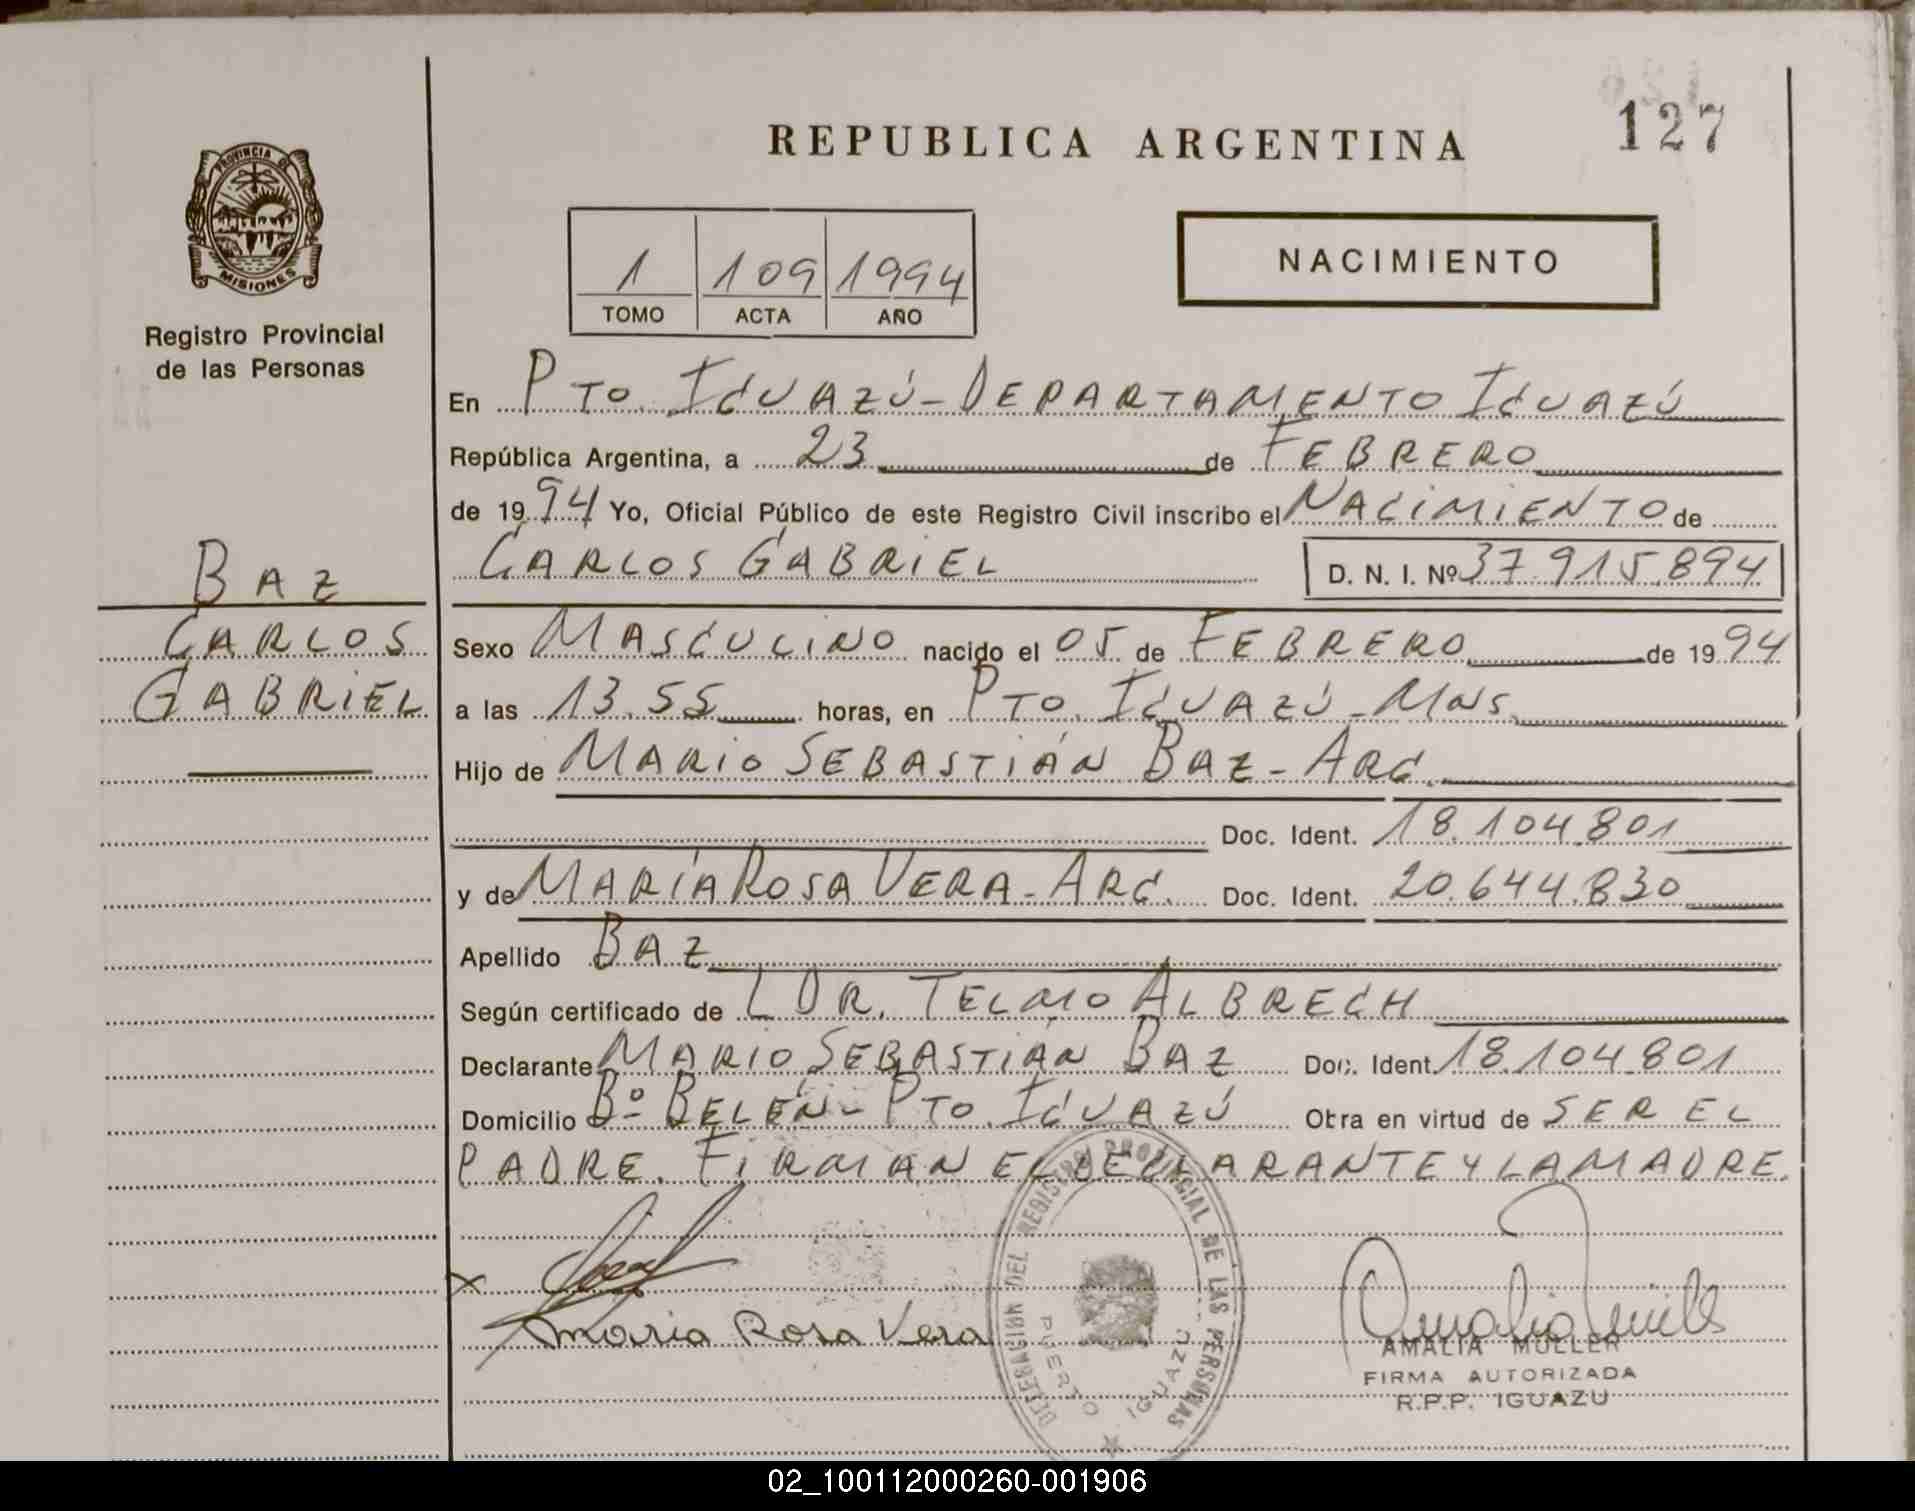 127
REPUBLICA ARGENTINA
PROVINCIA DE
MISIONES
Registro Provincial
de las Personas
1 109 1994
TOMO ACTA AÑO
NACIMIENTO
En Pto. Iguazú - Departamento Iguazú
República Argentina, a 23 de Febrero
de 1994 Yo, Oficial Público de este Registro Civil inscribo el Nacimiento de
Carlos Gabriel D. N. I. Nº 37.915.894
Baz
Carlos
Gabriel
Sexo Masculino nacido el 05 de Febrero de 1994
a las 13.55 horas, en Pto. Iguazú - Mns.
Hijo de Mario Sebastián Baz - Arg.
Doc. Ident. 18.104.801
y de María Rosa Vera - Arg. Doc. Ident. 20.644.830
Apellido Baz
Según certificado de Dr. Telmo Albrech
Declarante Mario Sebastián Baz Doc. Ident. 18.104.801
Domicilio Bº Belén - Pto. Iguazú Otra en virtud de ser el
padre. Firman el declarante y la madre.
Maria Rosa Vera
DELEGACION DEL REGISTRO PROVINCIAL DE LAS PERSONAS
PUERTO IGUAZU
AMALIA MULLER
FIRMA AUTORIZADA
R.P.P. IGUAZU
02_100112000260-001906